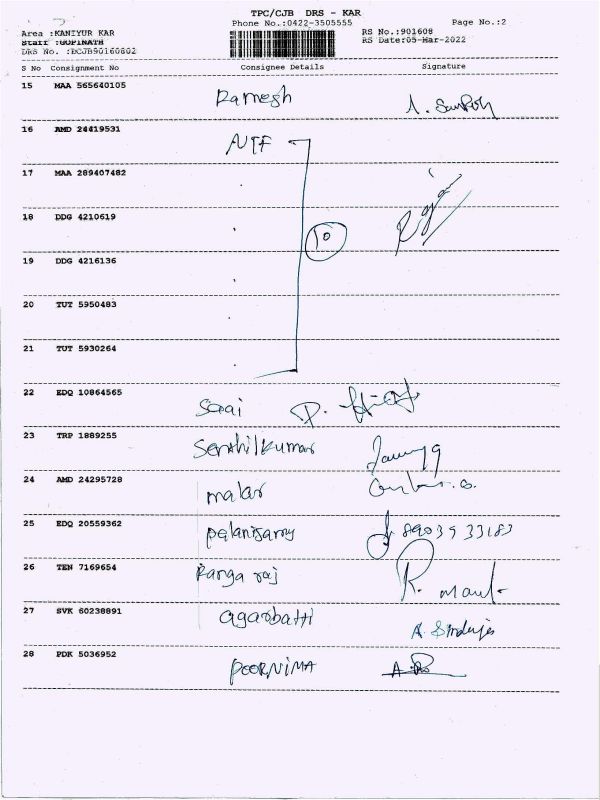 TPC/CJB DRS - KAR
Phone No.:0422-3505555 Page No.:2
Area :KANIYUR KAR RS No.:901608
Staff :GOPINATH RS Date:05-Mar-2022
DRS No. :BCJB90160802
S No Consignment No Consignee Details Signature
15 MAA 565640105 Ramesh
16 AMD 24419531 NTF
17 MAA 289407482
18 DDG 4210619 10
19 DDG 4216136
20 TUT 5950483
21 TUT 5930264
22 EDQ 10864565
23 TRP 1889255 Senthilkumar
24 AMD 24295728 malar
25 EDQ 20559362 palanisamy 8903933183
26 TEN 7169654 Ranga raj
27 SVK 60238891 agarbatti
28 PDK 5036952 POORNIMA